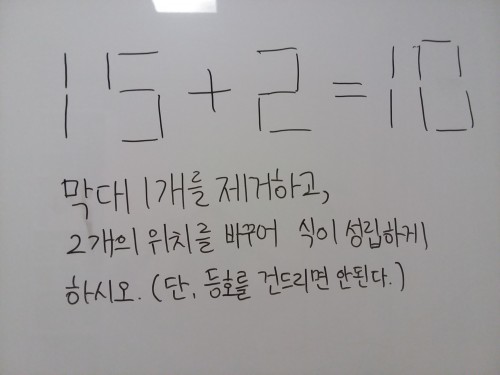 15+2=10
막대 1개를 제거하고,
2개의 위치를 바꾸어 식이 성립하게
하시오. (단, 등호를 건드리면 안된다.)